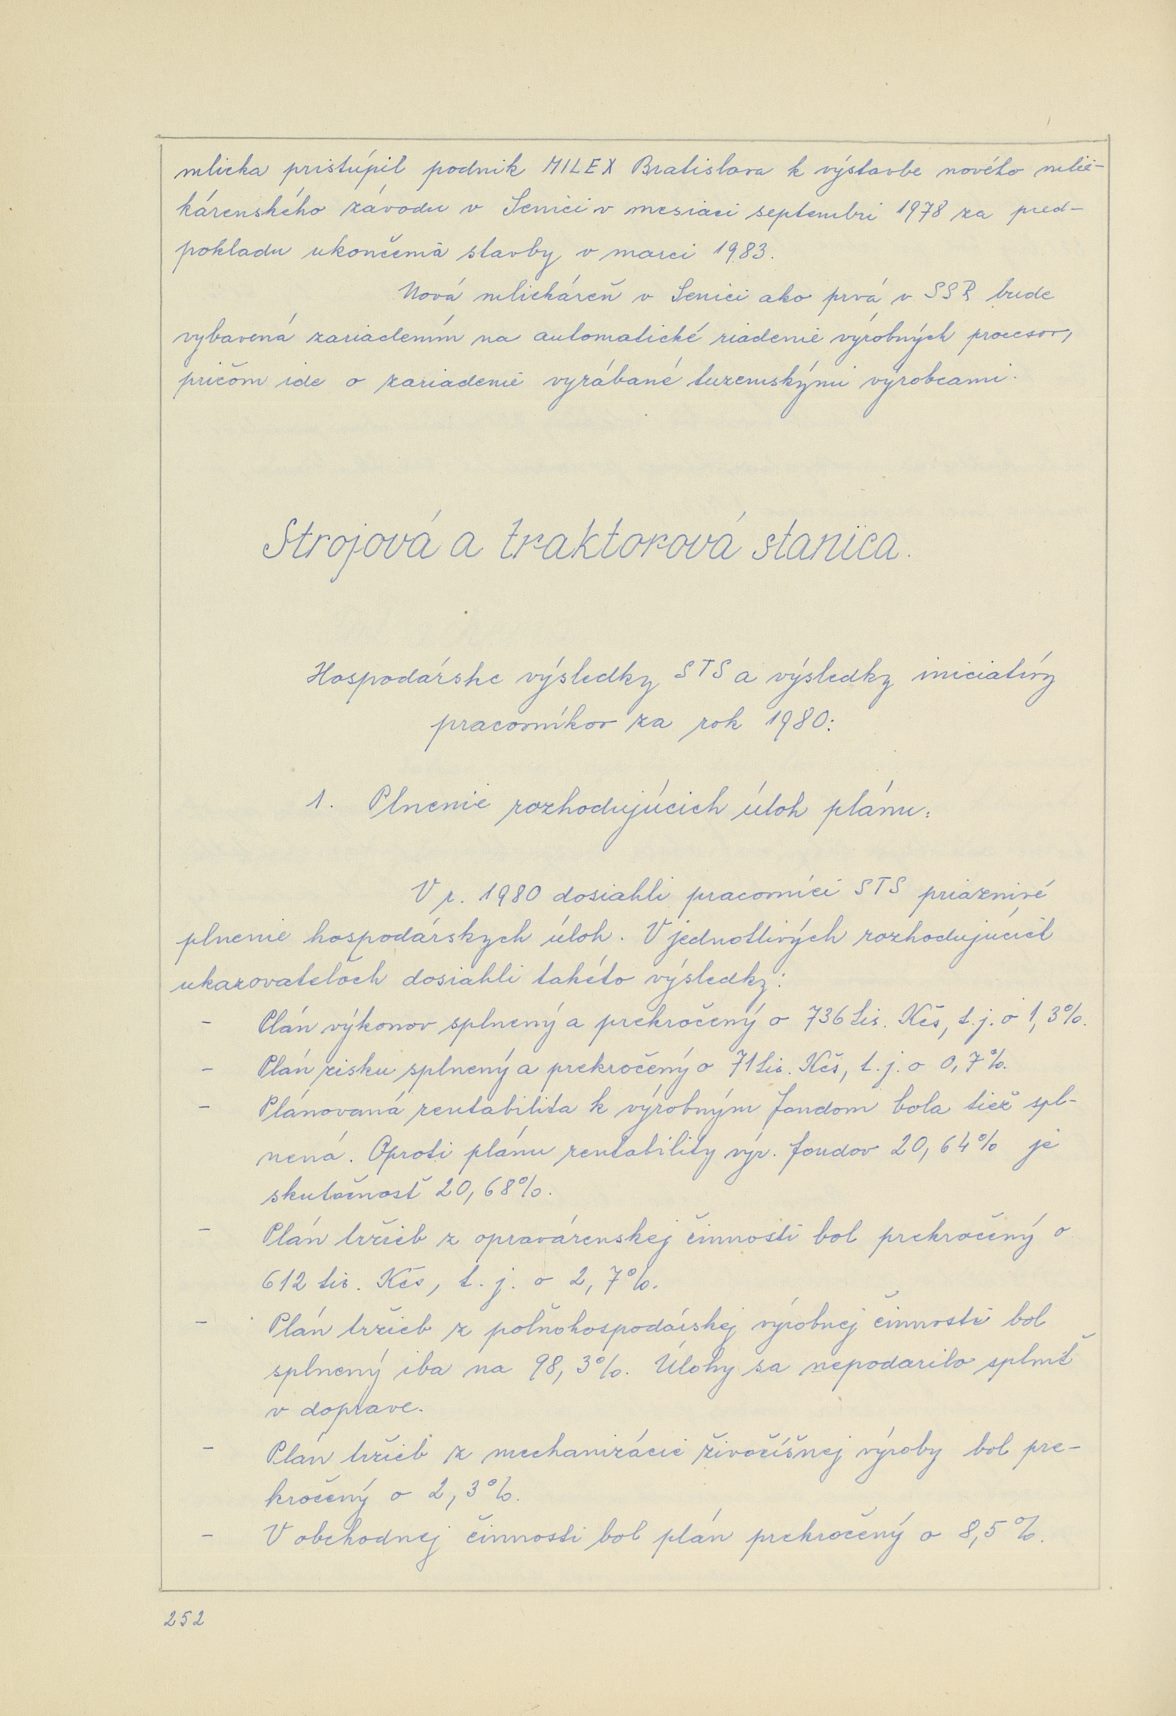 mlieka pristúpil podnik MILEX Bratislava k výstavbe nového mlie-
kárenského závodu v Senici v mesiaci septembri 1978 za pred-
pokladu ukončenia stavby v marci 1983.
Nová mliekáreň v Senici ako prvá v SSR bude
vybavená zariadením na automatické riadenie výrobných procesov,
pričom ide o zariadenie vyrábané tuzemskými výrobcami.
Strojová a traktorová stanica.
Hospodárske výsledky STS a výsledky iniciatívy
pracovníkov za rok 1980:
1. Plnenie rozhodujúcich úloh plánu:
V r. 1980 dosiahli pracovníci STS priaznivé
plnenie hospodárskych úloh. V jednotlivých rozhodujúcich
ukazovateľoch dosiahli takéto výsledky:
- Plán výkonov splnený a prekročený o 736 tis. Kčs, t.j. o 1,3%.
- Plán zisku splnený a prekročený o 71 tis. Kčs, t.j. o 0,7%.
- Plánovaná rentabilita k výrobným fondom bola tiež spl-
nená. Oproti plánu rentability výr. fondov 20,64% je
skutočnosť 20,68%.
- Plán tržieb z opravárenskej činnosti bol prekročený o
612 tis. Kčs, t.j. o 2,7%.
- Plán tržieb z poľnohospodárskej výrobnej činnosti bol
splnený iba na 98,3%. Úlohy sa nepodarilo splniť
v doprave.
- Plán tržieb z mechanizácie živočíšnej výroby bol pre-
kročený o 2,3%.
- V obchodnej činnosti bol plán prekročený o 8,5%.
252